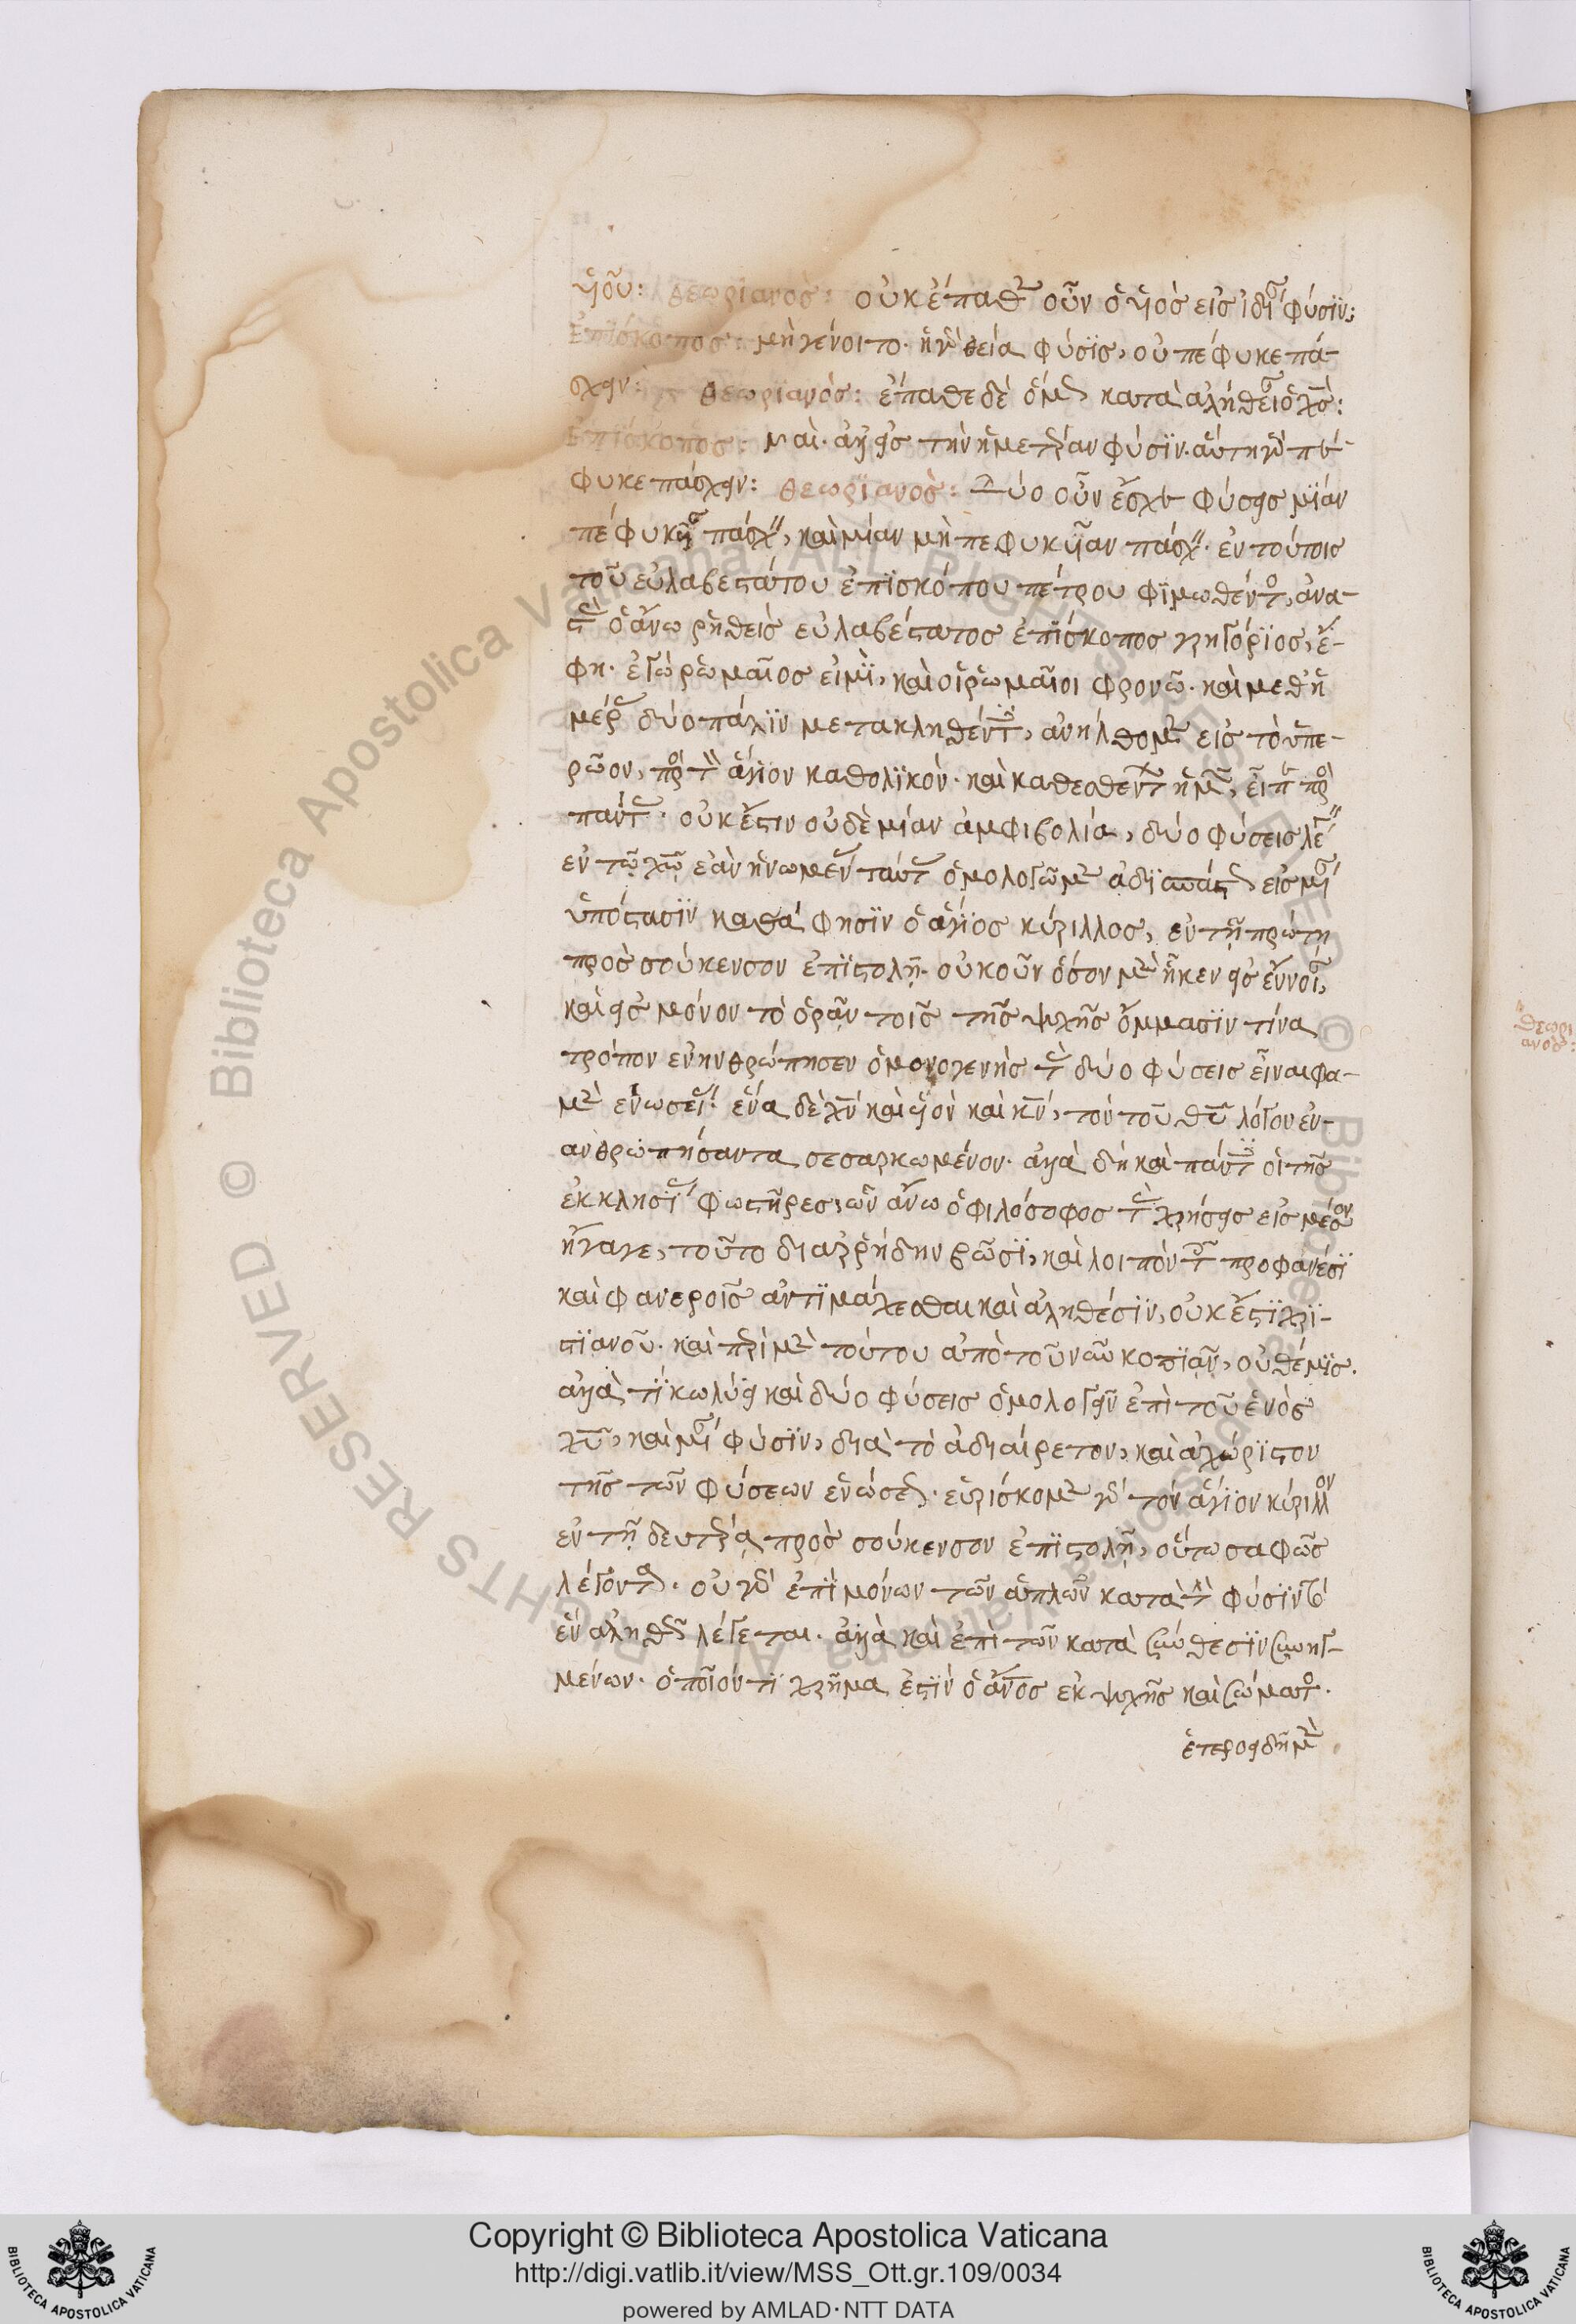 υἱοῦ: θεωριανὸς: οὐκ ἔπαθεν οὖν ὁ υἱὸς εἰς ἰδίαν φύσιν;
Ἐπίσκοπος: μὴ γένοιτο. ἡ γὰρ θεία φύσϊς, οὐ πέφυκε πά-
σχειν: θεωρϊανὸς: ἔπαθε δὲ ὅμως κατὰ ἀλήθειαν ὁ χς:
Ἐπίσκοπος: ναὶ. ἀλλ' εἰς τὴν ἡμετέραν φύσϊν. αὕτη γὰρ πέ-
φυκε πάσχειν: θεωρϊανὸς: Δύο οὖν ἔσχε φύσεις μϊάν
πεφυκυῖαν πάσχειν, καὶ μίαν μὴ πεφυκυῖαν πάσχειν. ἐν τούτοις
τοῦ εὐλαβεστάτου ἐπϊσκόπου πέτρου φϊμωθέντος, ἀνα-
στὰς ὁ ἄνω ῥηθεὶς εὐλαβέστατος ἐπΐσκοπος γρηγόρϊος, ἔ-
φη. ἐγὼ ῥωμαῖος εἰμϊ, καὶ οἱ ῥωμαῖοι φρονῶ. καὶ μεθ' ἡ
μέρας δύο πάλϊν μετακληθέντες, ἀνήλθομεν εἰς τὸ ὑπε-
ρῶον, πρὸς τὸν ἅγϊον καθολϊκόν. καὶ καθεσθέντων ἡμῶν, εἶπε πρὸς
πάντας. οὐκ ἔστιν οὐδὲ μίαν ἀμφιβολία, δύο φύσεις λέγειν
ἐν τῷ χῶ ἐὰν ἡνωμένας ταύτας ὁμολογῶμεν ἀδϊασπάστως εἰς μίαν
ὑπόστασϊν καθά φησϊν ὁ ἅγϊος κύριλλος, ἐν τῇ πρώτῃ
πρὸς σούκενσον ἐπϊστολῇ. οὐκοῦν ὅσον μὲν ἧκεν εἰς ἔννοιαν,
καὶ εἰς μόνον τὸ ὁρᾷν τοῖς τῆς ψυχῆς ὄμμασϊν τίνα
τρόπον ἐνηνθρώπησεν ὁ μονογενὴς τὰς δύο φύσεις εἶναι φα-
μὲν ἑνώσει. ἕνα δὲ χν καὶ υἱὸν καὶ κν, τὸν τοῦ θυ λόγον ἐν-
ανθρωπήσαντα σεσαρκωμένον. ἀλλὰ δὴ καὶ πάντες οἱ τῆς
ἐκκλησΐας φωστῆρες, ὧν ἄνω ὁ φιλόσοφος τὰς χρήσεις εἰς μέσον
ἤγαγε, τοῦτο διαρρήδην βοῶσϊ, καὶ λοιπόν τοῖς προφανέσϊ
καὶ φανεροῖς ἀντϊμάχεσθαι καὶ ἀληθέσϊν, οὐκ ἔστϊ χρϊ-
στϊανοῦ. καὶ περὶ μὲν τούτου ἀπὸ τοῦ νῦν κοπϊᾷν, οὐ θέμϊς.
ἀλλὰ τΐ κωλύει καὶ δύο φύσεις ὁμολογεῖν ἐπὶ τοῦ ἑνὸς
χυ, καὶ μίαν φύσϊν, διὰ τὸ ἀδιαίρετον, καὶ ἀχώρϊστον
τῆς τῶν φύσεων ἑνώσεως. εὑρίσκομεν γὰρ τὸν ἅγϊον κύριλλον
ἐν τῇ δευτέρᾳ πρὸς σούκενσον ἐπϊστολῇ, οὕτω σαφῶς
λέγοντα. οὐ γὰρ ἐπὶ μόνων τῶν ἁπλῶν κατὰ τὴν φύσϊν τὸ
ἓν ἀληθῶς λέγεται. ἀλλὰ καὶ ἐπὶ τῶν κατὰ σύνθεσϊν συνηγ-
μένων. ὁποῖόν τϊ χρῆμα ἐστϊν ὁ ἄνος ἐκ ψυχῆς καὶ σώματος.
ἑτεροειδῆ μὲν
θεωρι
ανος:
Copyright © Biblioteca Apostolica Vaticana
http://digi.vatlib.it/view/MSS_Ott.gr.109/0034
powered by AMLAD·NTT DATA